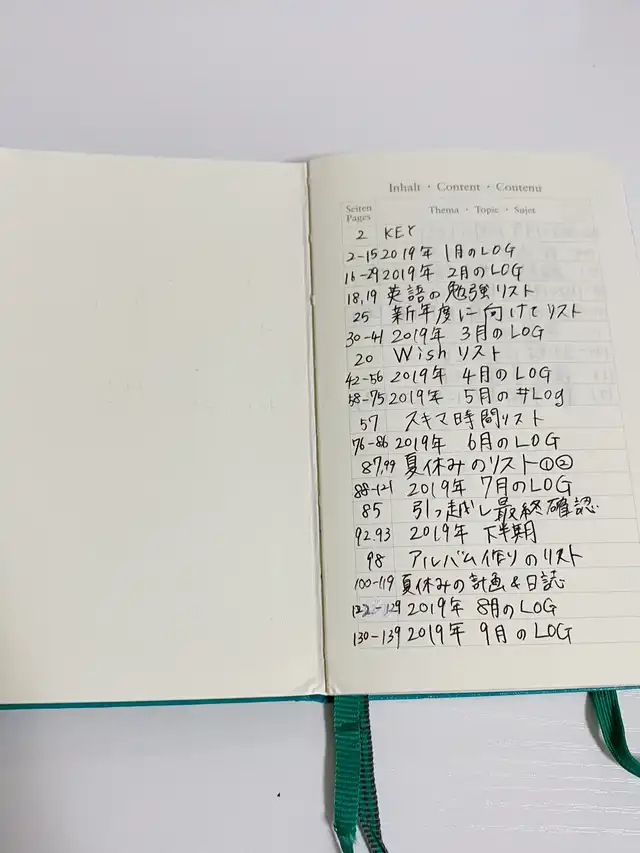 Inhalt · Content · Contenu
Seiten Pages Thema · Topic · Sujet
2 KEY
2-15 2019年 1月のLOG
16-29 2019年 2月のLOG
18,19 英語の勉強リスト
25 新年度に向けてリスト
30-41 2019年 3月のLOG
20 Wishリスト
42-56 2019年 4月のLOG
58-75 2019年 5月の#Log
57 スキマ時間リスト
76-86 2019年 6月のLOG
87,99 夏休みのリスト①②
88-121 2019年 7月のLOG
85 引っ越し最終確認
92.93 2019年 下半期
98 アルバム作りのリスト
100-119 夏休みの計画&日誌
122-129 2019年 8月のLOG
130-139 2019年 9月のLOG